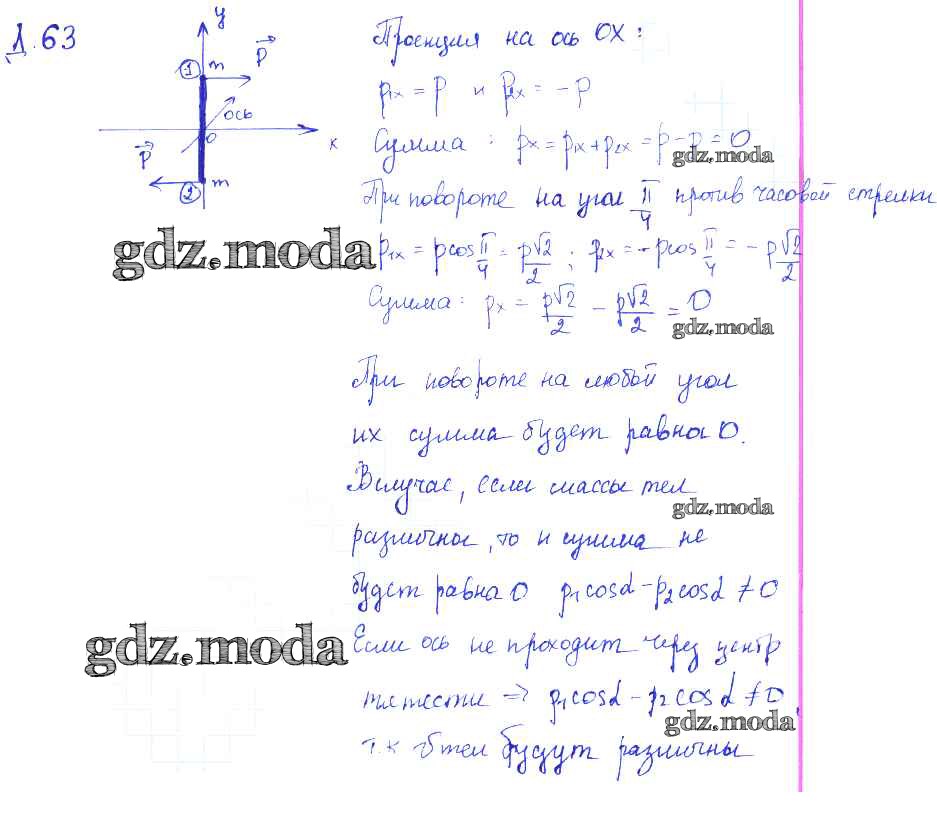 Д.63
y
① m
p⃗
ось
0
x
p⃗
② m
Проекция на ось OX:
p₁ₓ = p и p₂ₓ = -p
Сумма: pₓ = p₁ₓ + p₂ₓ = p - p = 0
gdz.moda
При повороте на угол π/4 против часовой стрелки
gdz.moda
p₁ₓ = p cos π/4 = p√2/2 ; p₂ₓ = -p cos π/4 = -p√2/2
Сумма: pₓ = p√2/2 - p√2/2 = 0
gdz.moda
При повороте на любой угол
их сумма будет равна 0.
В случае, если массы тел
gdz.moda
различны, то и сумма не
будет равна 0 p₁cosα - p₂cosα ≠ 0
gdz.moda
Если ось не проходит через центр
тяжести => p₁cosα - p₂cosα ≠ 0,
gdz.moda
т.к тел будут различны